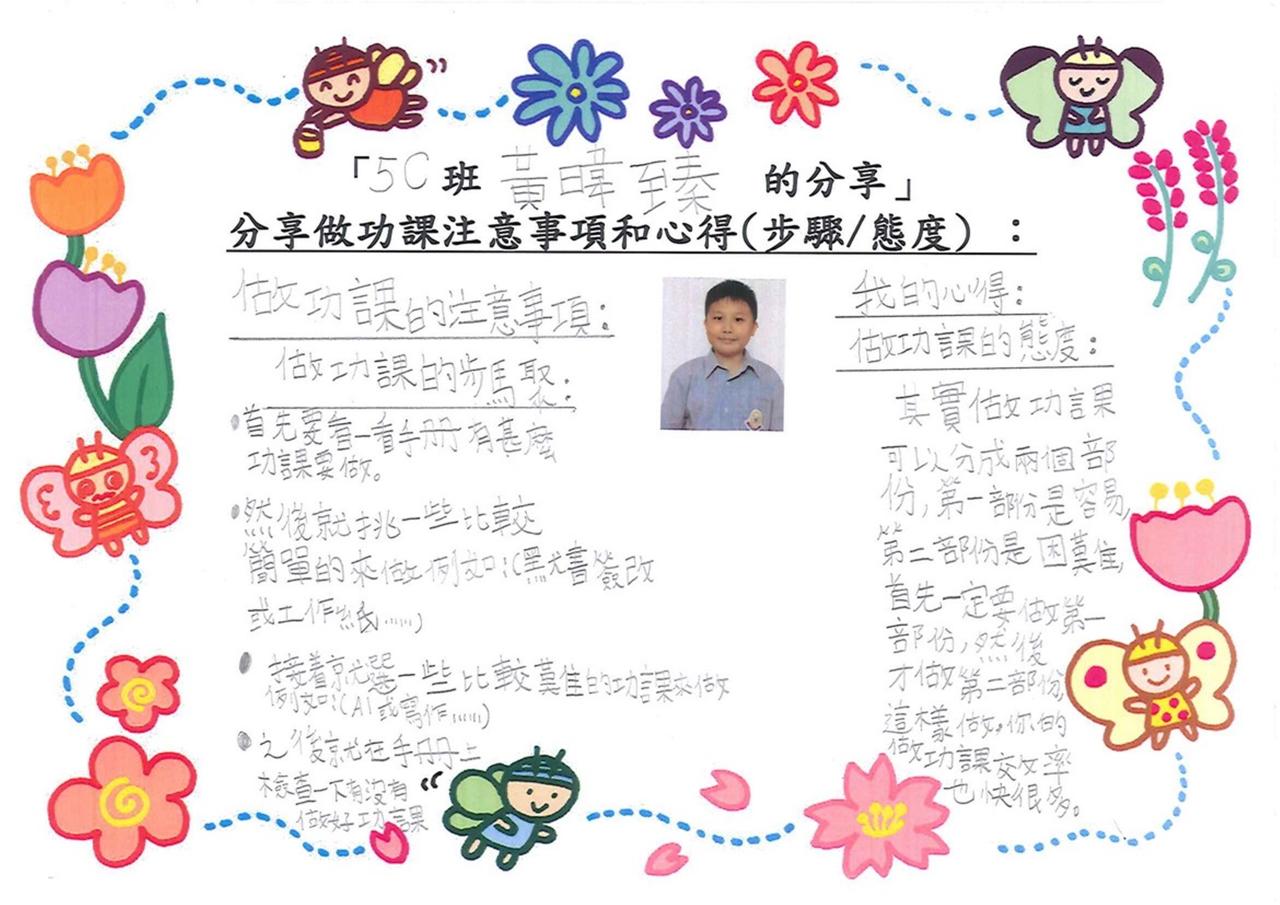 「5C班 黃暐臻 的分享」
分享做功課注意事項和心得(步驟/態度)：
做功課的注意事項：
做功課的步驟：
首先要看一看手冊有甚麼
功課要做。
然後就挑一些比較
簡單的來做例如：(默書簽改
或工作紙……)
接着就選一些比較難的功課來做
例如：(AI或寫作……)
之後就在手冊上
檢查一下有沒有
做好功課
我的心得：
做功課的態度：
其實做功課
可以分成兩個部
份，第一部份是容易，
第二部份是困難，
首先一定要做第一
部份，然後
才做第二部份，
這樣做，你的
做功課效率
也快很多。